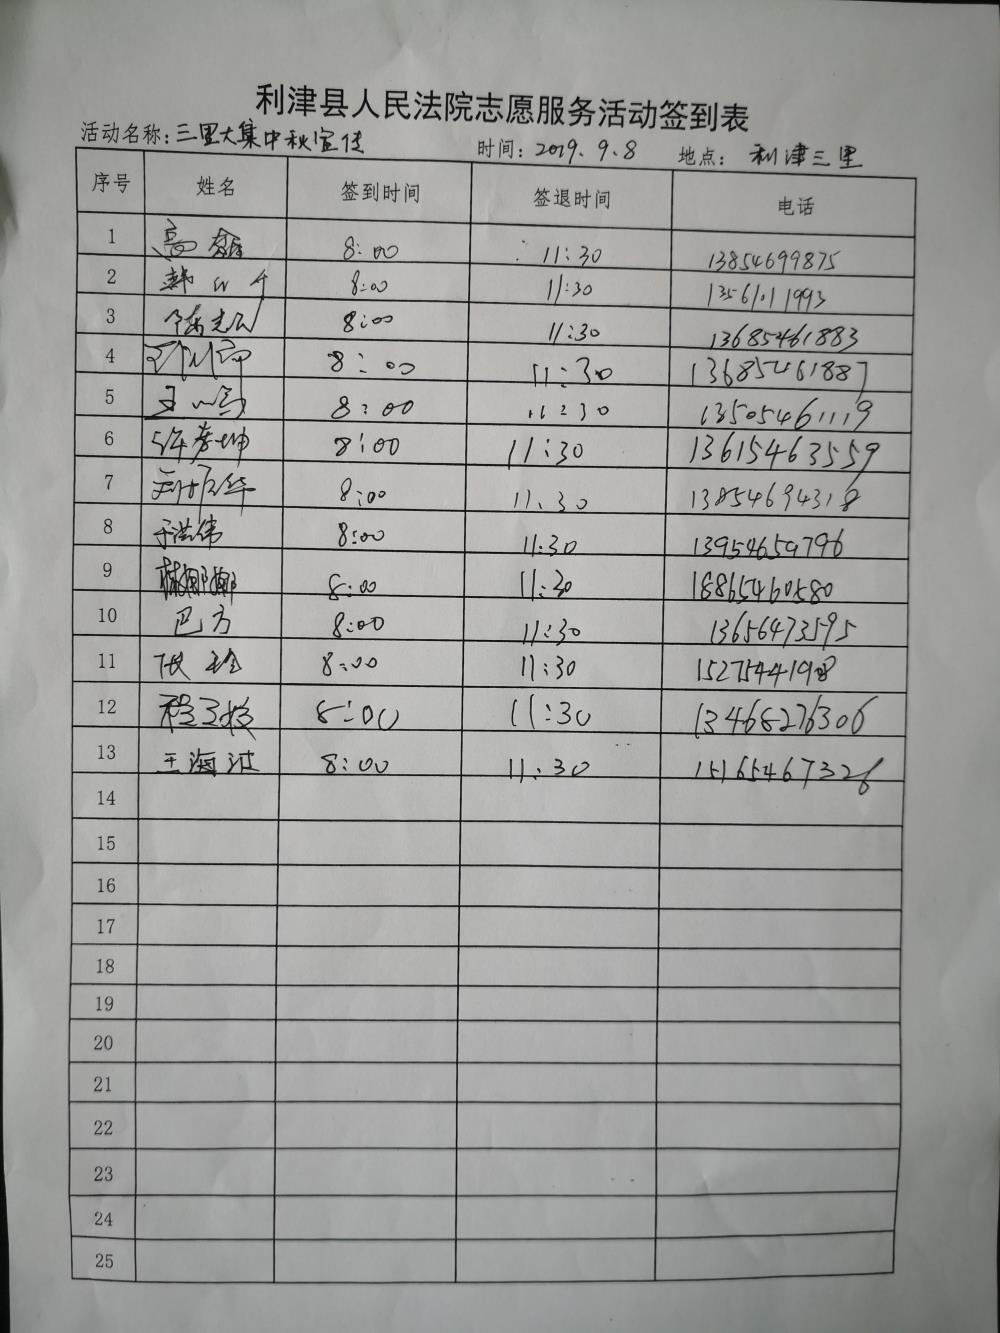 利津县人民法院志愿服务活动签到表
活动名称：三里大集中秋宣传 时间：2019.9.8 地点：利津三里
序号 姓名 签到时间 签退时间 电话
1 高 8:00 11:30 13854699875
2 韩 8:00 11:30 13561011993
3 8:00 11:30 13685461883
4 8:00 11:30 13685461887
5 王 8:00 11:30 13505461119
6 许彦坤 8:00 11:30 13615463559
7 8:00 11:30 13854694318
8 于洪伟 8:00 11:30 13954659796
9 娜娜 8:00 11:30 18865460580
10 巴方 8:00 11:30 13656473595
11 张玲 8:00 11:30 15275441908
12 程 8:00 11:30 13468276306
13 王海波 8:00 11:30 15165467326
14
15
16
17
18
19
20
21
22
23
24
25